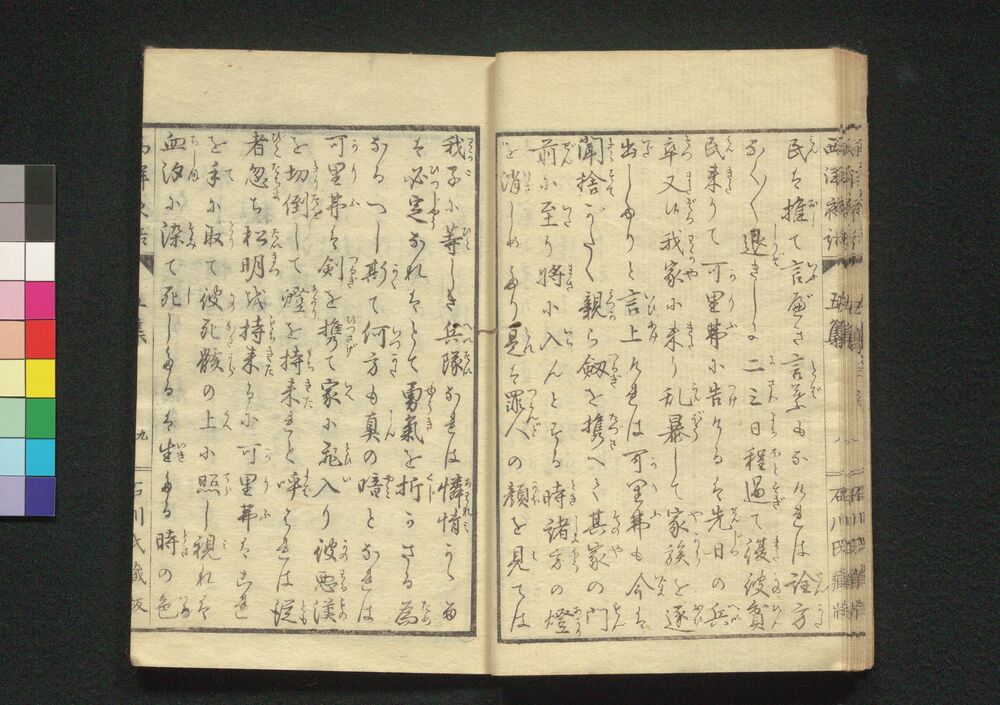 民を推て言べき言葉もなければ詮方
なく〳〵退きしに二三日程過て護彼貧
民来りて可里弗に告けるは先日の兵
卒又候我家に来り乱暴して家族を逐
出しぬと言上ければ可里弗も今は
聞捨がたく親ら劔を携へて其家の門
前に至り将に入んとする時諸方の燈
を消しめたり是は罪人の顔を見ては
我子に等しき兵隊なれは憐情かゝるは
必定なれはとて勇氣を折かざる為
なるべし斯て何方も真の暗となれは
可里弗は剣を携て家に飛入り彼悪漢
を切倒して燈を持来れと呼はれは從
者忽ち松明を持来るに可里弗たゞ是
を手に取て彼死骸の上に照し視れは
血汐に染て死しゐるは生ゐる時の色
九
石川氏藏板